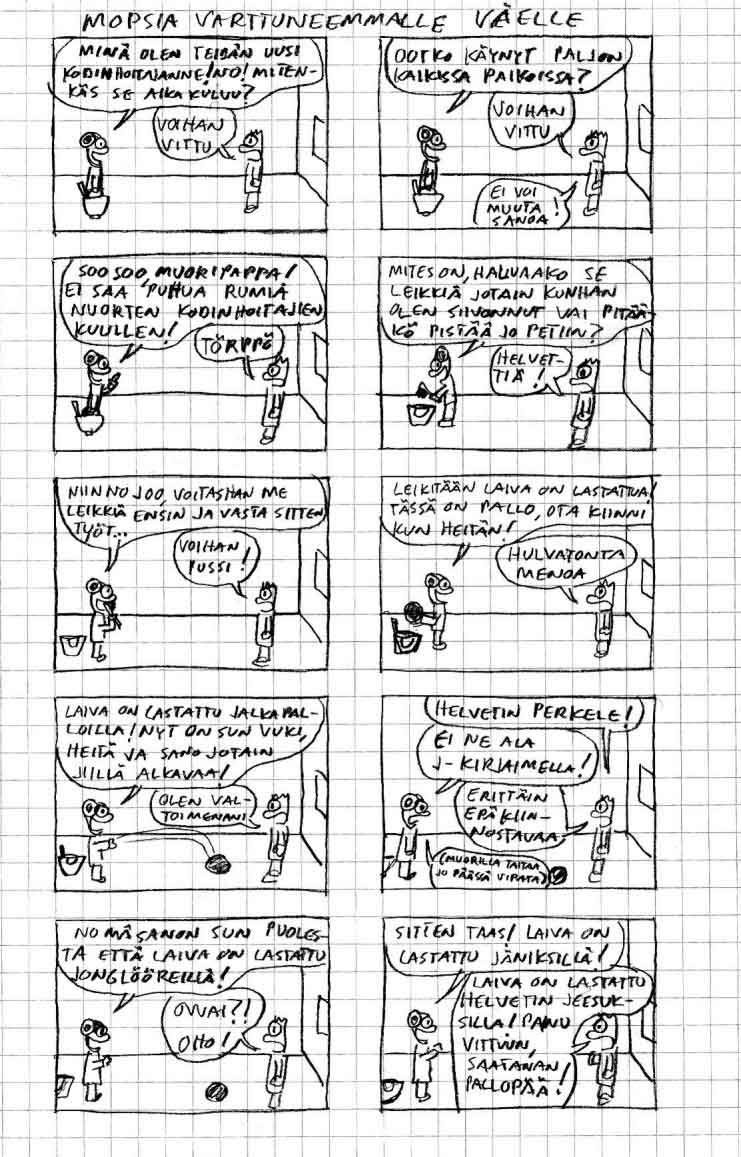 MOPSIA VARTTUNEEMMALLE VÄELLE
MINÄ OLEN TEIDÄN UUSI
KODINHOITAJANNE! NO! MITEN-
KÄS SE AIKA KULUU?
VOIHAN
VITTU
OOTKO KÄYNYT PALJON
KAIKISSA PAIKOISSA?
VOIHAN
VITTU
EI VOI
MUUTA
SANOA!
SOO SOO, MUORIPAPPA!
EI SAA PUHUA RUMIA
NUORTEN KODINHOITAJIEN
KUULLEN!
TÖRPPÖ
MITES ON, HALUUAKO SE
LEIKKIÄ JOTAIN KUNHAN
OLEN SIIVONNUT VAI PITÄÄ-
KÖ PISTÄÄ JO PETIIN?
HELVET-
TIÄ!
NIIN NO JOO, VOITASHAN ME
LEIKKIÄ ENSIN JA VASTA SITTEN
TYÖT...
VOIHAN
PUSSI!
LEIKITÄÄN LAIVA ON LASTATTUA!
TÄSSÄ ON PALLO, OTA KIINNI
KUN HEITÄN!
HULVATONTA
MENOA
LAIVA ON LASTATTU JALKAPAL-
LOILLA! NYT ON SUN VUKI,
HEITÄ JA SANO JOTAIN
JIILLÄ ALKAVAA!
OLEN VAL-
TOIMENANI
HELVETIN PERKELE!
EI NE ALA
J-KIRJAIMELLA!
ERITTÄIN
EPÄKIIN-
NOSTAVAA
(MUORILLA TAITAA
JO PÄÄSSÄ VIPATA)
NO MÄ SANON SUN PUOLES-
TA ETTÄ LAIVA ON LASTATTU
JONGLÖÖREILLÄ!
OVVAI?!
OHO!
SITTEN TAAS! LAIVA ON
LASTATTU JÄNIKSILLÄ!
LAIVA ON LASTATTU
HELVETIN JEESUK-
SILLA! PAINU
VITTUUN,
SAATANAN
PALLOPÄÄ!